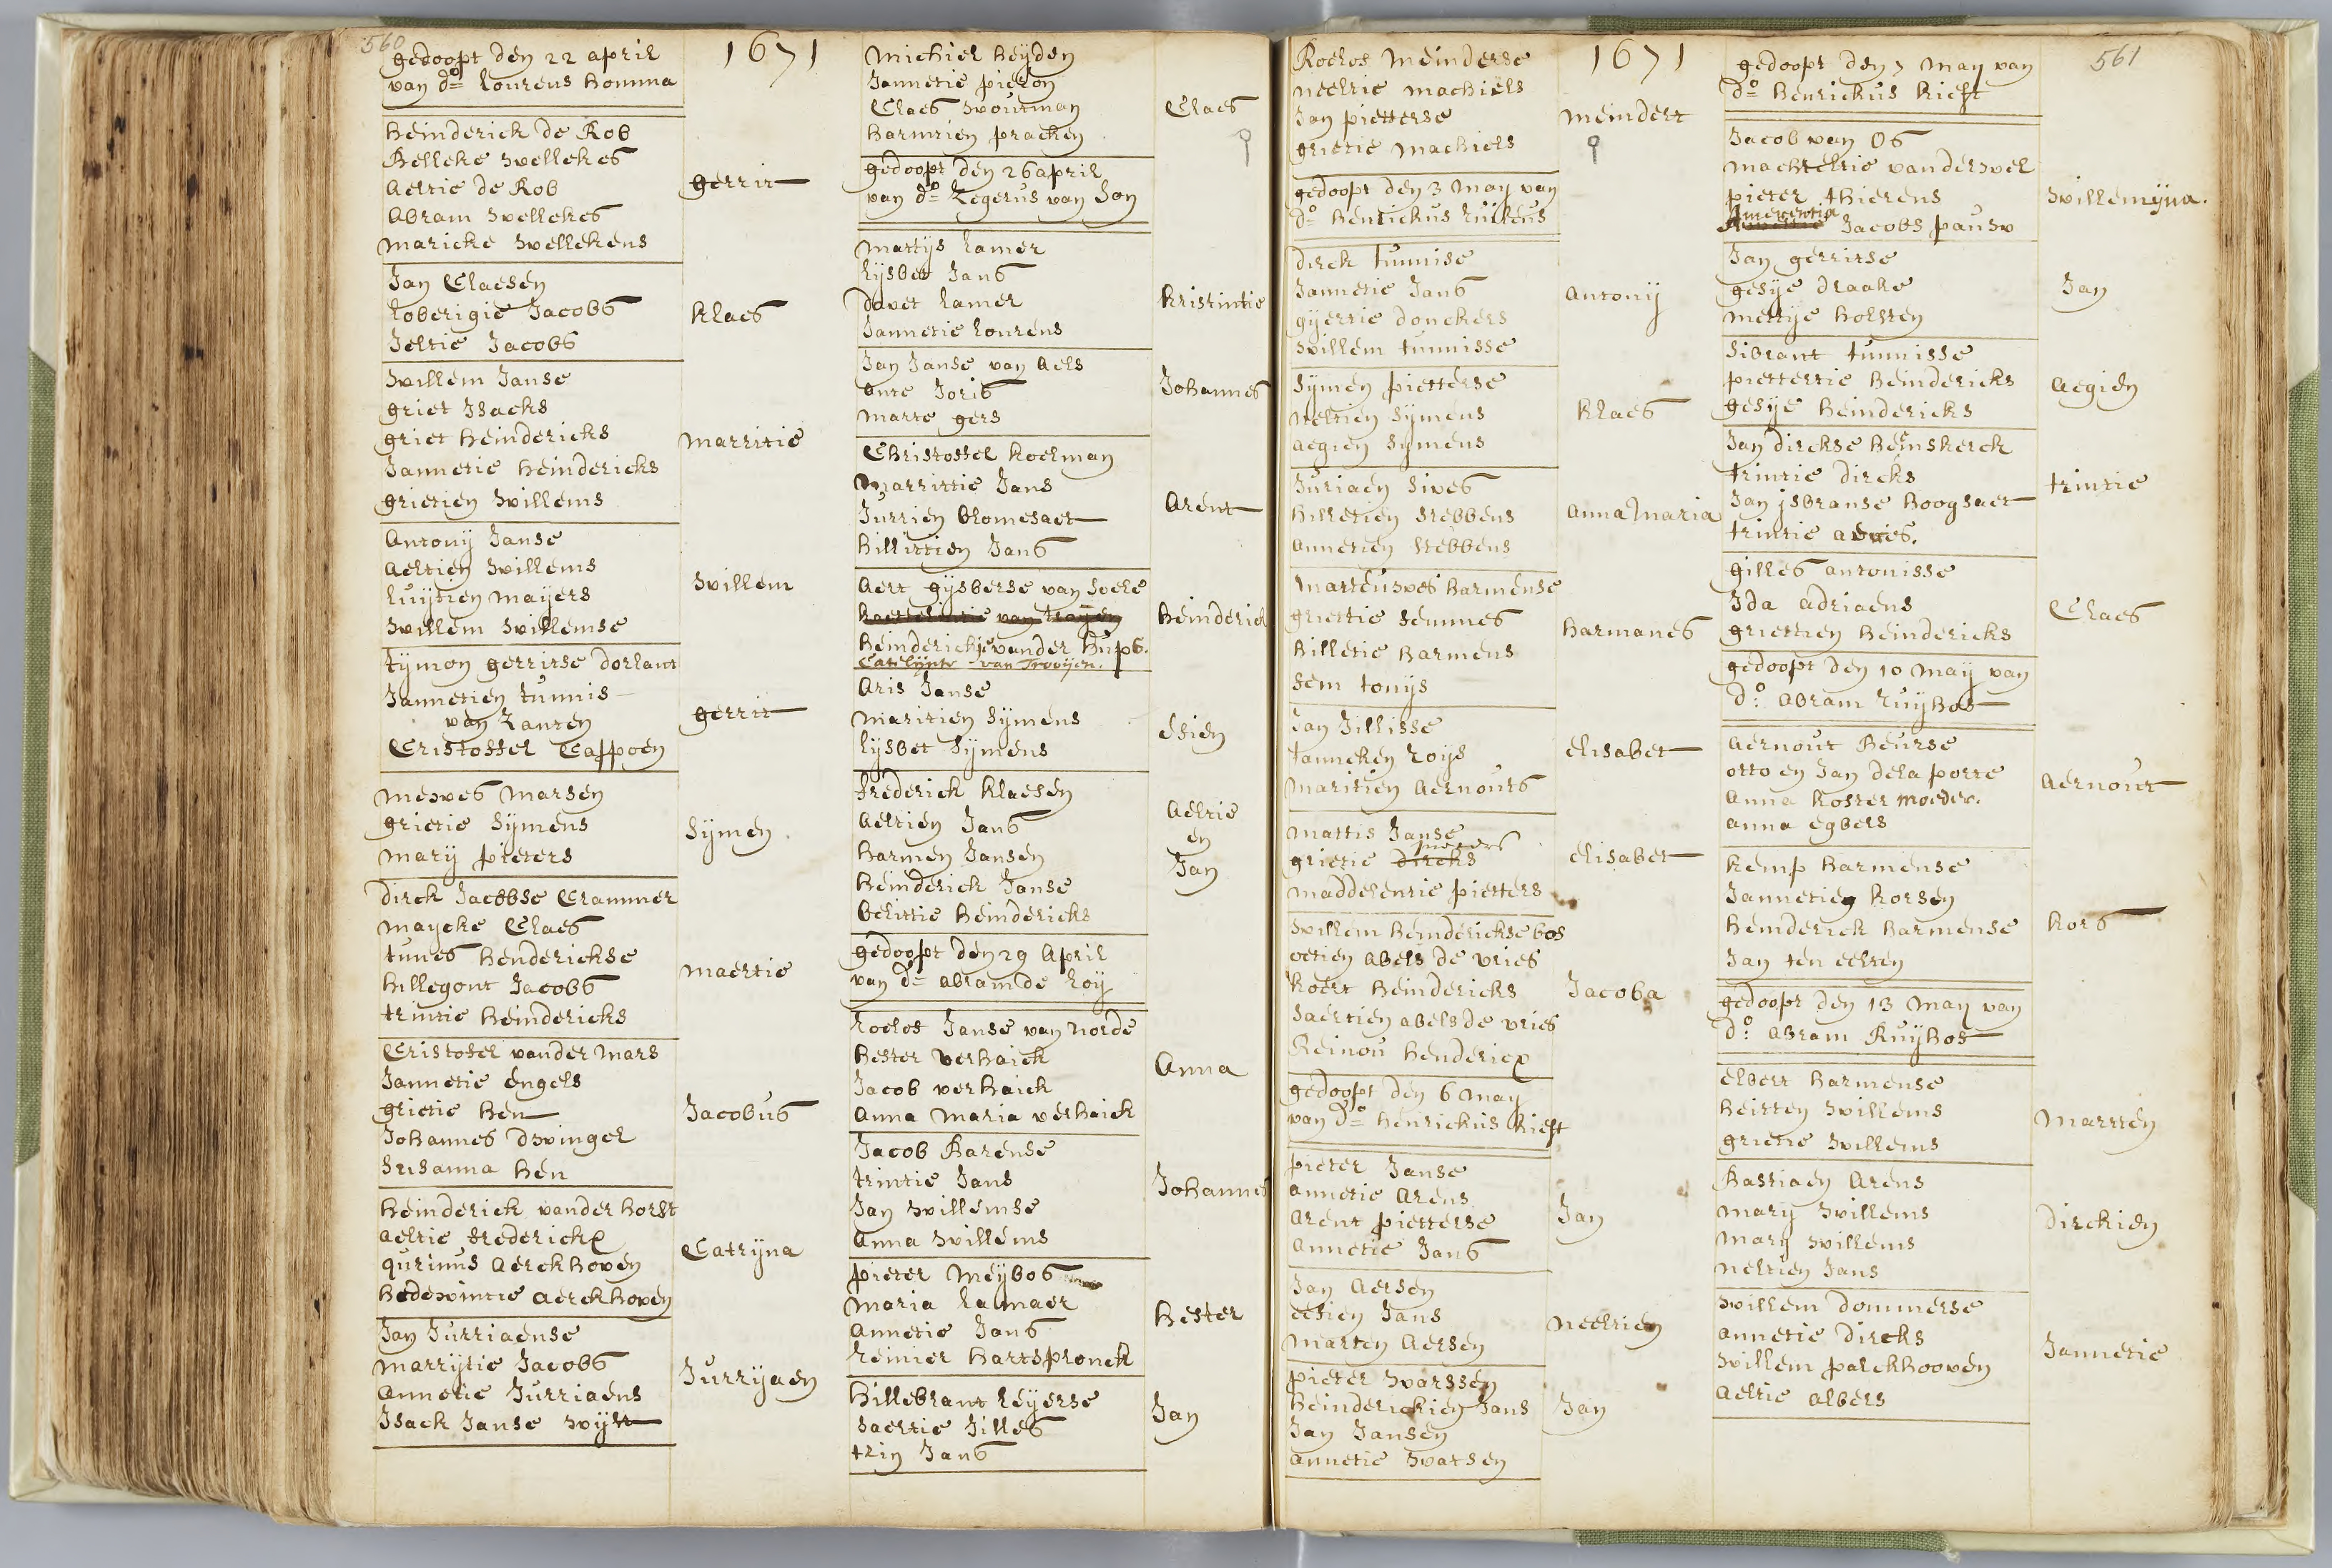 560
1671
gedoopt den 22 april
van do lourens homma
heinderick de Rob
Belleke wellekes
aeltie de Rob
abram wellekes
maricke wellekens
gerrit
Jan Claesen
loberigie Jacobs
Jeltie Jacobs
klaes
willem Janse
griet Isacks
griet heindericks
Jannetie heindericks
grietien willems
marritie
antony Janse
aeltien willems
luijtien mayers
willem willemse
willem
tijmon gerritse dorlant
Jannetien tunnis
van Zanten
Cristoffel Cappoen
gerrit
mewes marsen
grietie sijmens
marij pieters
Sijmen
dirck Jacobse Crammer
maycke Claes
tunes henderickse
hillegont Jacobs
trintie heindericks
maertie
Cristofel vander mars
Jannetie engels
grietie hen
Johannes dwinger
susanna hen
Jacobus
heinderick vander horst
aeltie frederickx
qurinus aerckhoven
hedewintie aerckhoven
Catrijna
Jan Jurriaense
marrijtie Jacobs
annetie Jurriaens
Isack Janse wijtt
Jurrijaen
michiel heijden
Jannetie pieron
Claes wourman
harmtien pracken
Claes
gedoopt den 26 april
van do Zegerus van Son
mattijs lamer
lijsbet Jans
davet lamer
Jannetie lourens
kristintie
Jan Janse van aels
ante Joris
marte gers
Johannes
Christoffel koelman
marrittie Jans
Jurrien blomesaet
hillittien Jans
arent
aert gijsberse van soele
heinderickje vander hups.
Catelijntr van Trooijen.
heinderick
aris Janse
maritien sijmens
lijsbet sijmens
Esien
frederick klaesen
aeltien Jans
harmen Jansen
heinderick Janse
belittie heindericks
aeltie
en
Jan
gedoopt den 29 april
van do abram de roy
roelof Janse van norde
hester verhaick
Jacob verhaick
anna maria verhaick
Anna
Jacob Barense
trintie Jans
Jan willemse
anna willems
Johannes
pieter meijbos
maria lamaer
annetie Jans
reinier hartspronck
hester
hillebrant reijerse
saertie Jilles
trin Jans
Jan
1671
561
Roelof meinderse
neeltie machiels
Jan pietterse
grietie machiels
meindert
gedoopt den 3 may van
do henrickus ruileus
dirck tunnise
Jannetie Jans
gijertie donckers
willem tunnisse
antonij
Sijmen pietterse
neltien sijmens
aegien sijmens
klaes
Juriaen sives
hilletien stebbens
annetien stebbens
anna maria
martenwes harmense
griettie semmes
hilletie harmens
sem tonijs
harmanes
Jan Jillisse
tanneken roijs
maritien aernouts
elisabet
mattis Janse
grietie dircks
maddelentie pietters
elisabet
willem heinderickse bos
oetien abels de vries
koert heindericks
saertien abels de vries
Reinou henderiex
Jacoba
gedoopt den 6 may
van do henrickus kieft
pieter Janse
annetie arens
arent pietterse
annetie Jans
Jan
Jan aersen
eesien Jans
marten aersen
neeltien
pieter warssen
heinderickien Jans
Jan Jansen
annetie watsen
Jan
gedoopt den 7 may van
do henrickus kieft
Jacob van Os
machteltie vanderwel
pieter thierens
Emerentia Jacobs pauw
willemijna.
Jan gerritse
gesije draake
mettije holsten
Jan
sibrant tunnisse
piettertie heindericks
gesije heindericks
aegien
Jan dirckse heinskerck
trintie dircks
Jan ijsbranse hoogsaet
trintie aeries.
trintie
gilles antonisse
Ida adriaens
griettien heindericks
Claes
gedoopt den 10 may van
do. abram ruijhof
aernout beurse
otto en Jan dela porte
anna koster moeder.
anna egbers
aernout
kemp harmense
Jannetien korsen
heinderick harmense
Jan ten eelsen
kors
gedoopt den 13 may van
do. abram Ruijhof
elbert harmense
heitten willems
grietie willems
martten
Bastiaen arens
marij willems
marij willems
neltien Jans
dirckien
willem dommerse
annetie dircks
willem palckhooven
aeltie albers
Jannetie